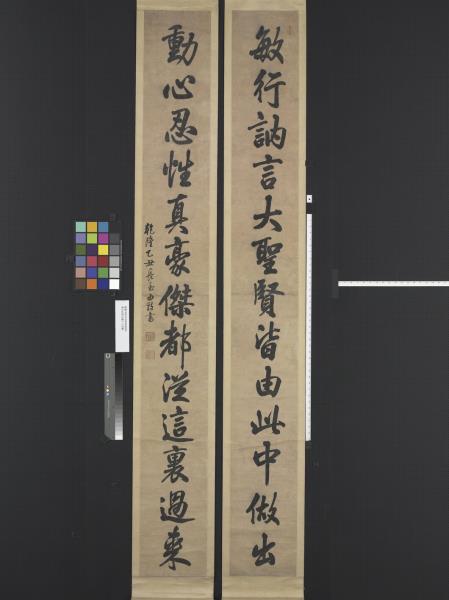 敏行訥言大聖賢皆由此中做出
動心忍性真豪傑都從這裏過來
乾隆乙丑